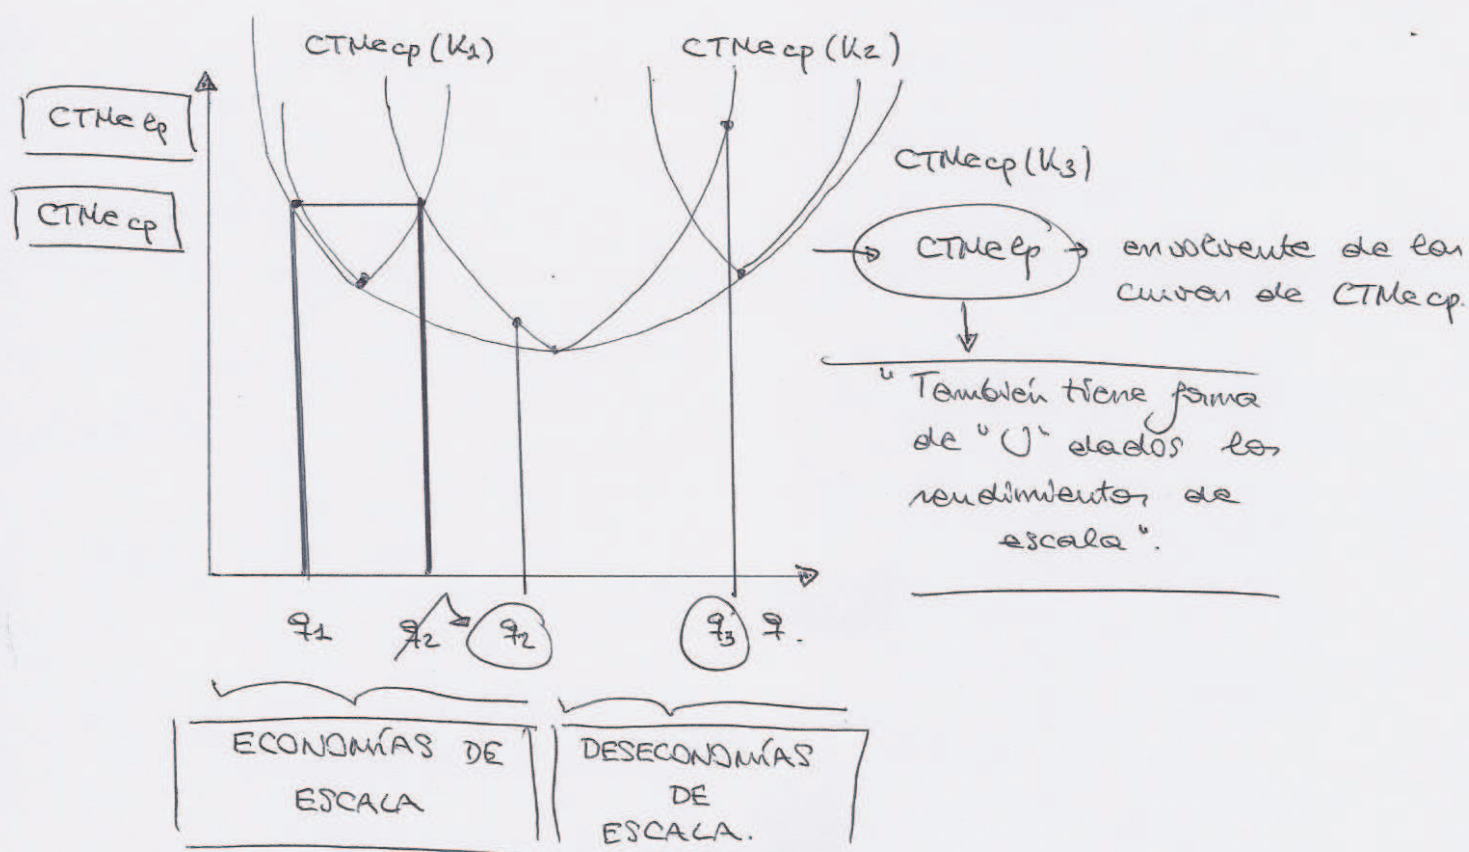 CTMecp (K1)
CTMecp (K2)
CTMe lp
CTMe cp
CTMecp (K3)
CTMelp → envolvente de las
curvas de CTMe cp.
"También tiene forma
de "U" dados los
rendimientos de
escala".
q1 q2 q2 q3 q.
ECONOMÍAS DE
ESCALA
DESECONOMÍAS
DE
ESCALA.